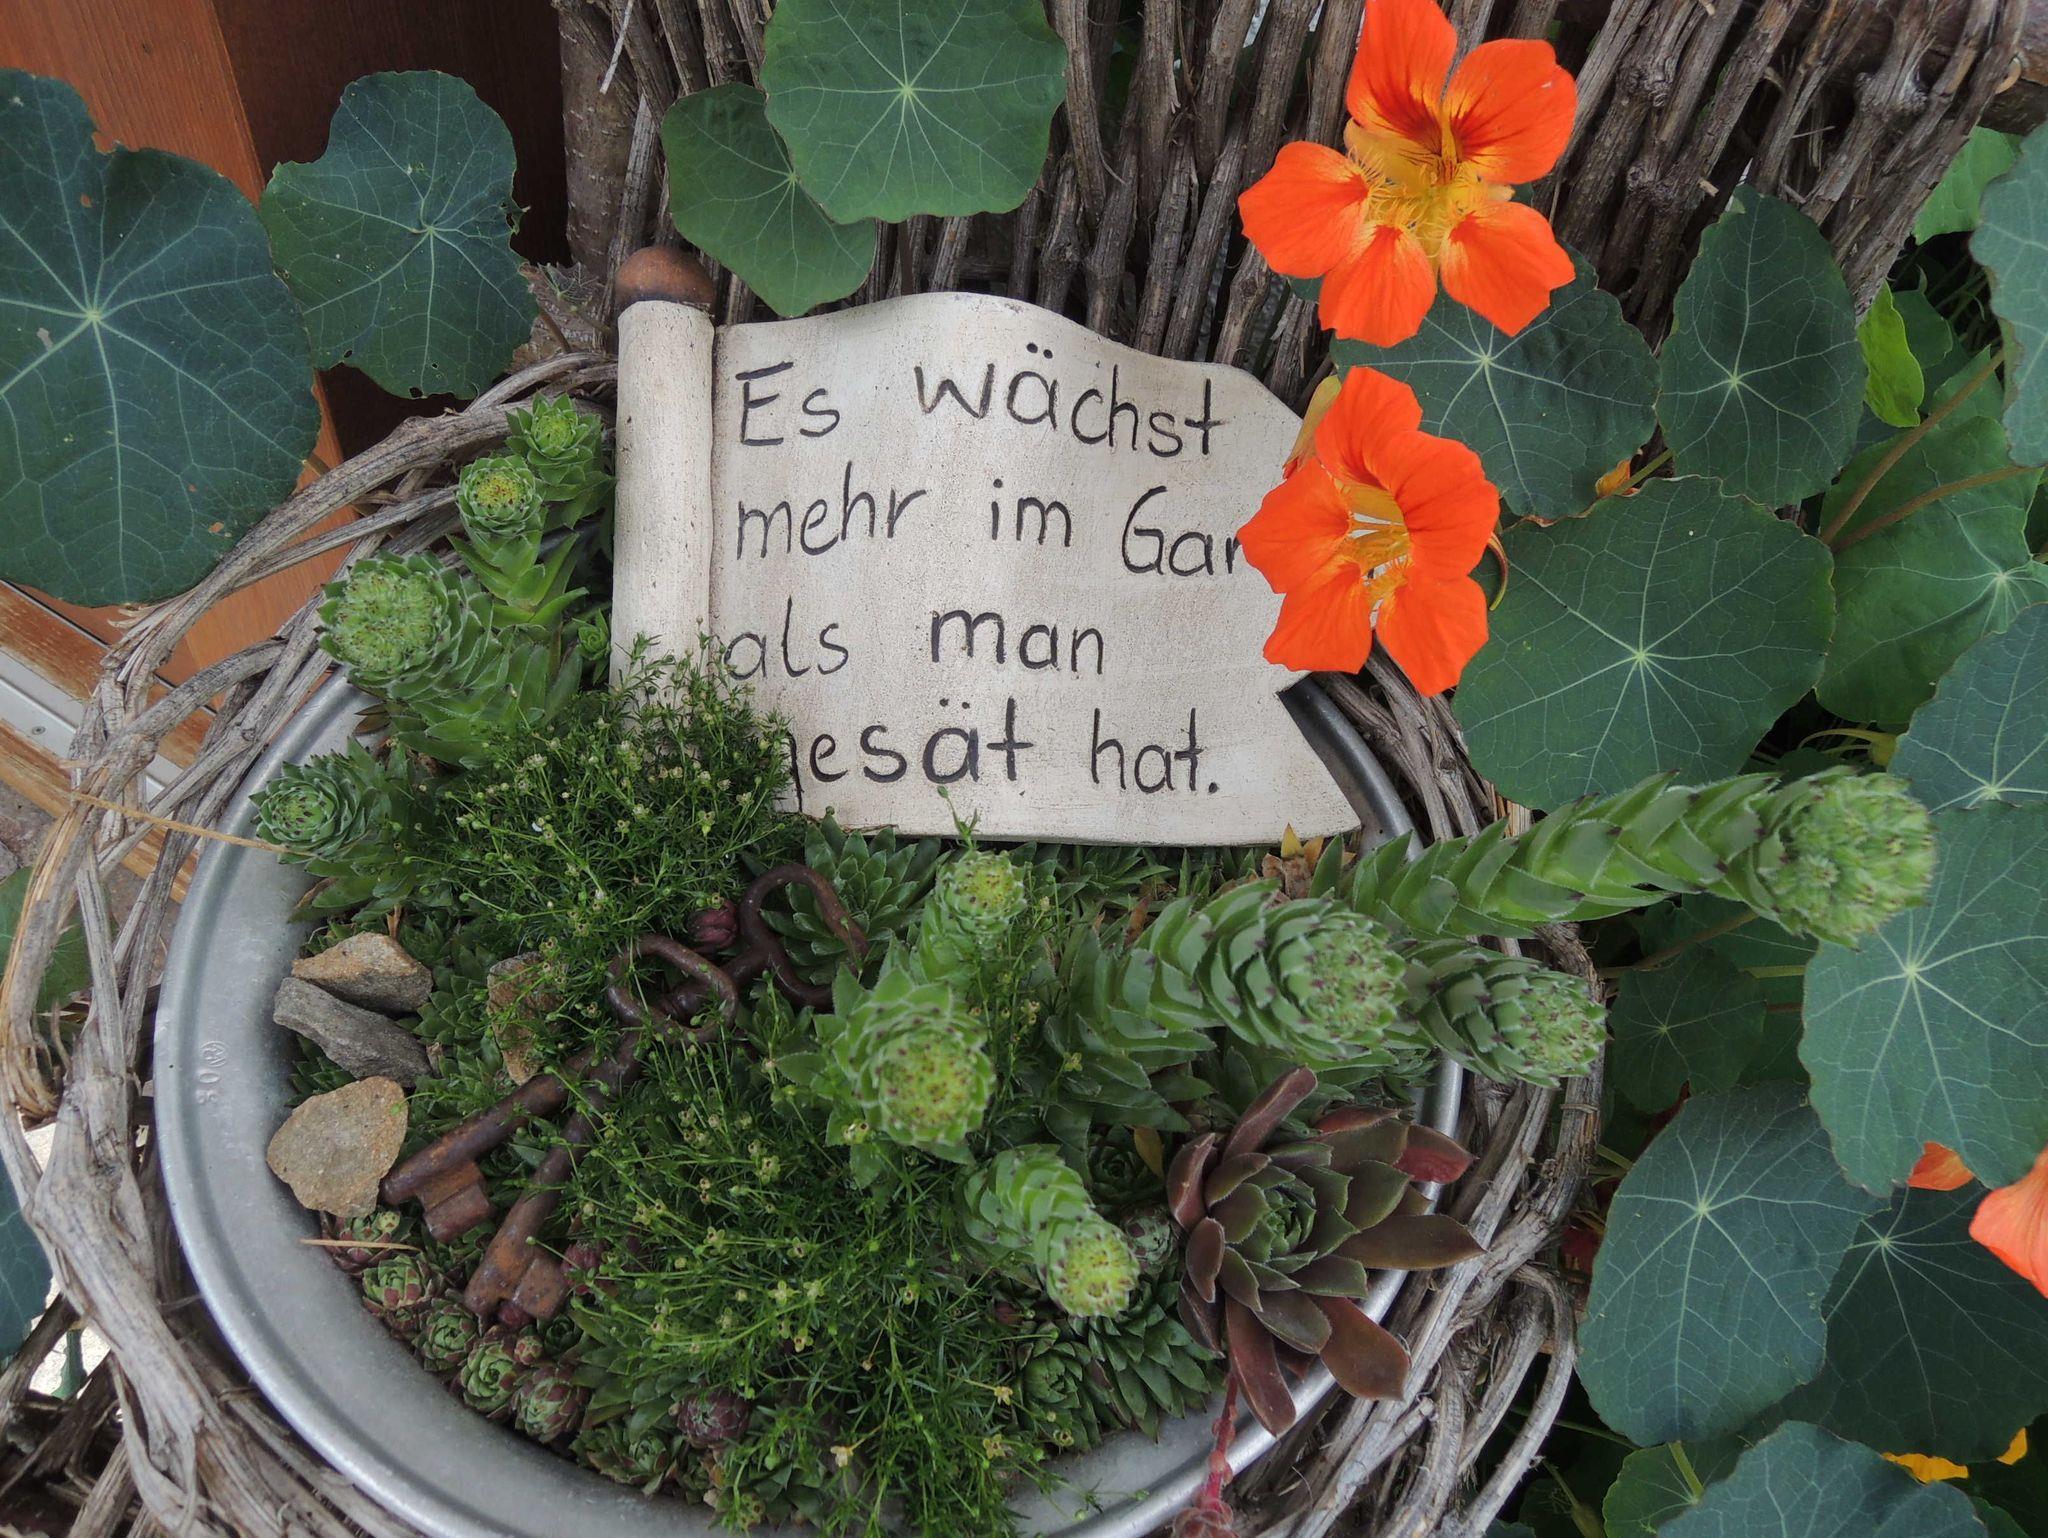 Es wächst
mehr im Gar
als man
gesät hat.